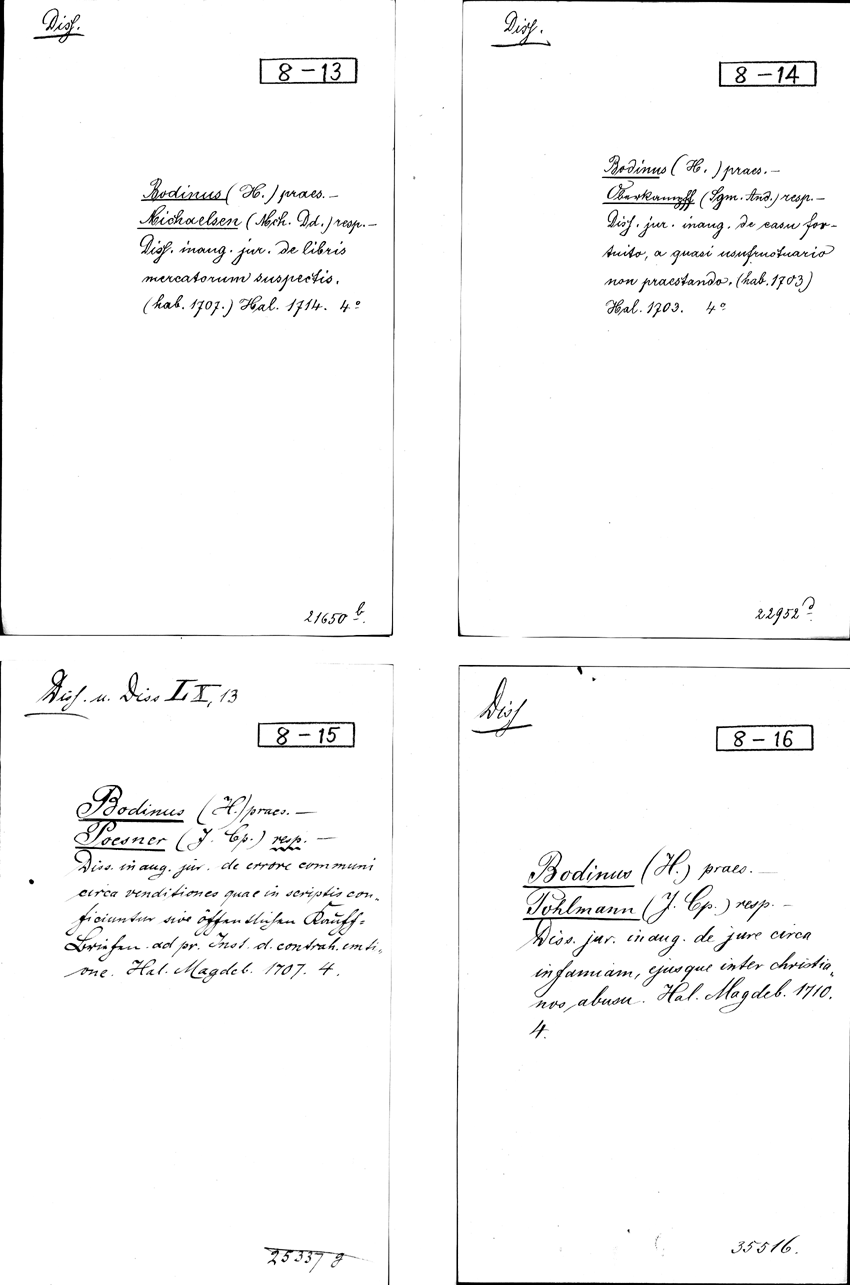 Diss.
8-13
Bodinus (H.) praes. —
Michaelsen (Mch. Dd.) resp. —
Diss. inaug. jur. de libris
mercatorum suspectis.
(hab. 1707.) Hal. 1714. 4°
21650 b.
Diss.
8-14
Bodinus (H.) praes. —
Oberkampff (Sgm. And.) resp. —
Diss. jur. inaug. de casu for-
tuito, a quasi usufructuario
non praestando. (hab. 1703)
Hal. 1703. 4°
22952
Diss. u. Diss LX, 13
8-15
Bodinus (H.) praes. —
Poesner (J. Cp.) resp. —
Diss. inaug. jur. de errore communi
circa venditiones quae in scriptis con-
ficiuntur sive öffentlichen Kauff-
Briefen. ad pr. Inst. d. contrah. emti-
one. Hal. Magdeb. 1707. 4.
25337 g
Diss
8-16
Bodinus (H.) praes. —
Pohlmann (J. Cp.) resp. —
Diss. jur. inaug. de jure circa
infamiam, ejusque inter christia-
nos abusu. Hal. Magdeb. 1710.
4.
35516.